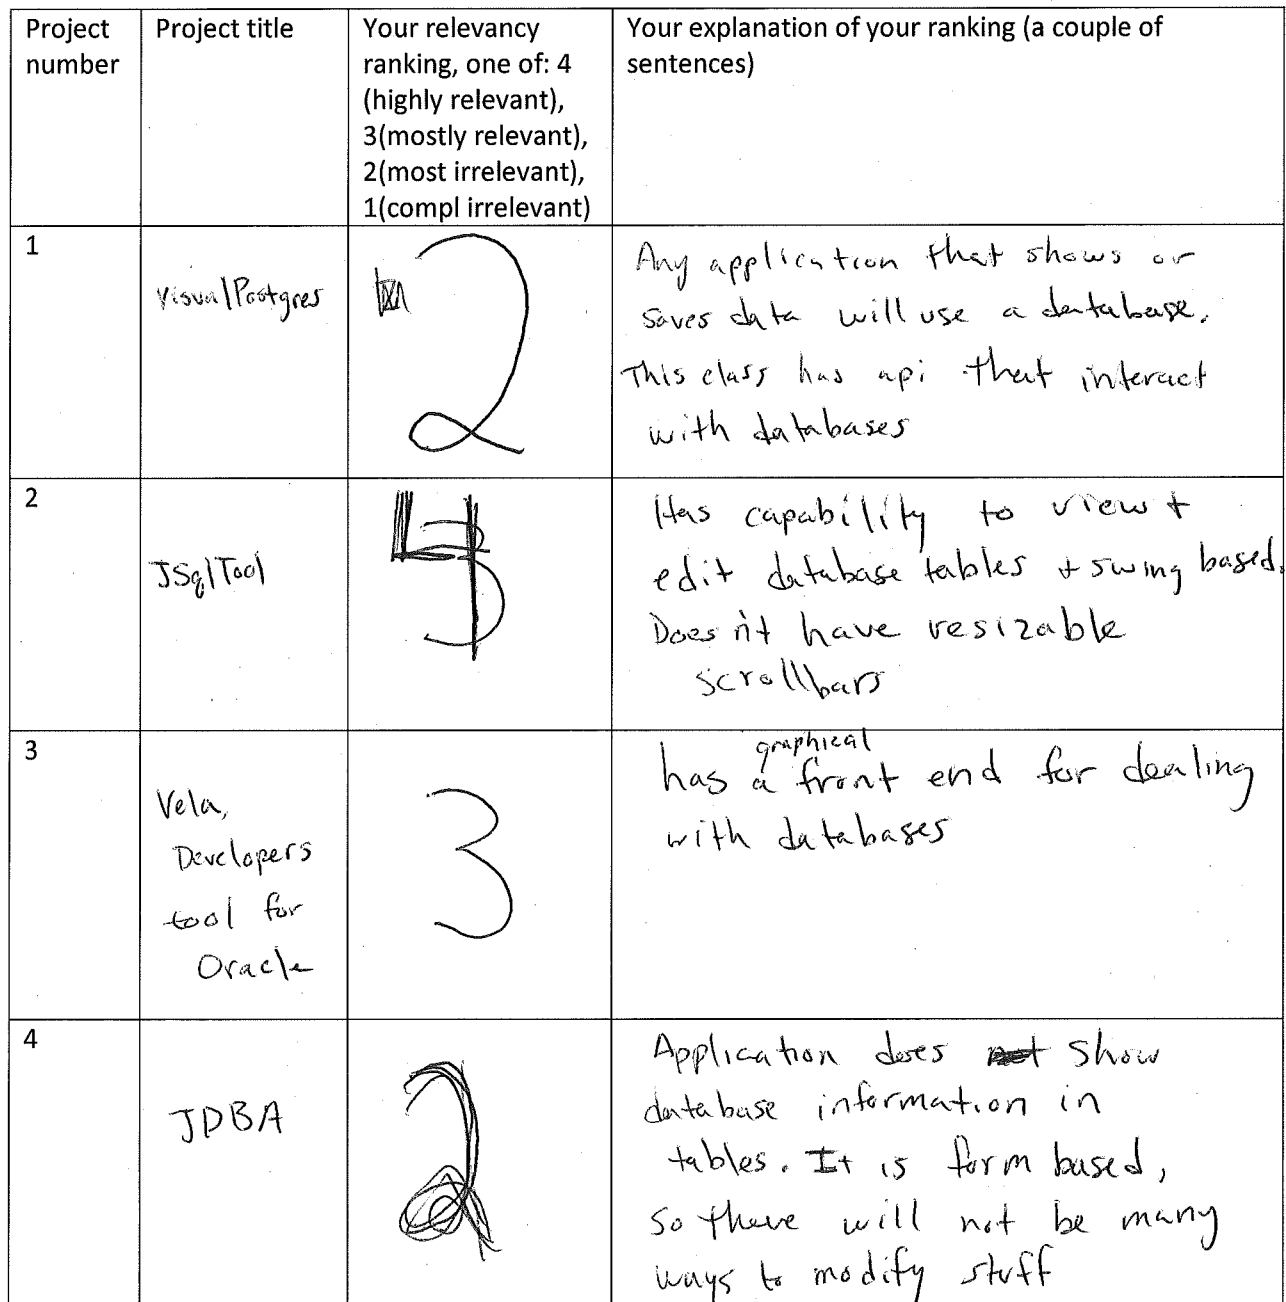 Project number
Project title
Your relevancy ranking, one of: 4 (highly relevant), 3(mostly relevant), 2(most irrelevant), 1(compl irrelevant)
Your explanation of your ranking (a couple of sentences)
1
VisualPostgres
2
Any application that shows or
saves data will use a database.
This class has api that interact
with databases
2
JSqlTool
4
Has capability to view +
edit database tables + swing based.
Doesn't have resizable
scrollbars
3
Vela,
Developers
tool for
Oracle
3
graphical
has a front end for dealing
with databases
4
JDBA
2
Application does not show
database information in
tables. It is form based,
so there will not be many
ways to modify stuff